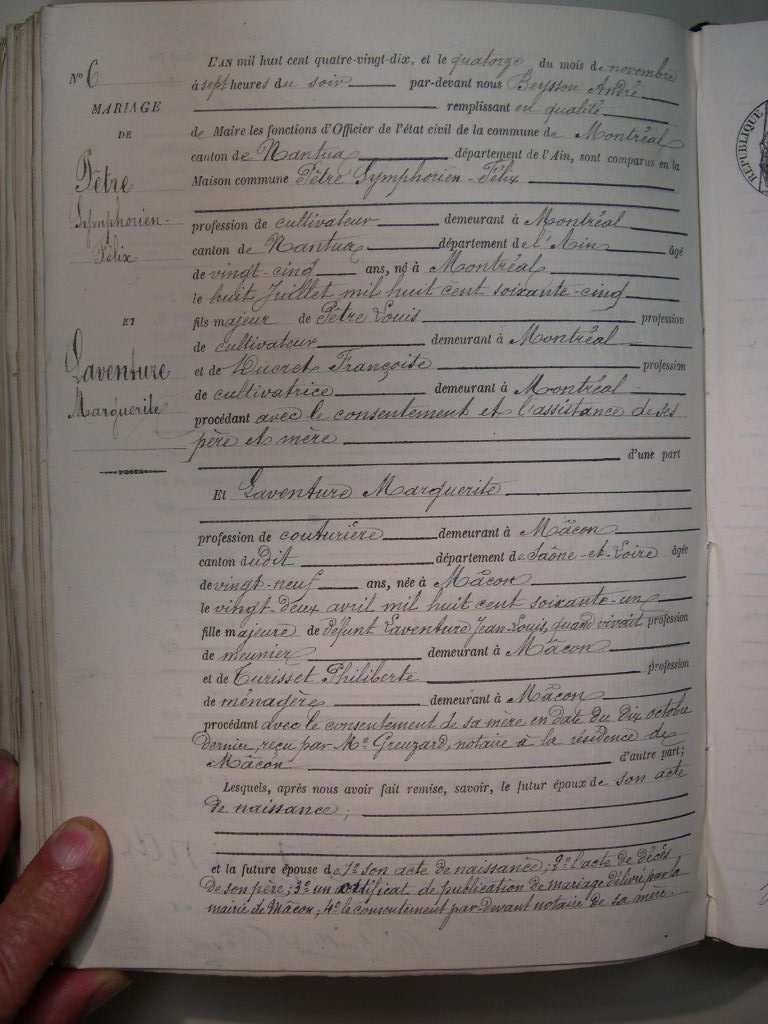 L'an mil huit cent quatre-vingt-dix, et le quatorze du mois de novembre
N° 6
à sept heures du soir par-devant nous Beysson André
MARIAGE
remplissant en qualité
DE
de Maire les fonctions d'Officier de l'état civil de la commune de Montréal
canton de Nantua département de l'Ain, sont comparus en la
Pêtre
Maison commune Pêtre Symphorien-Félix
Symphorien-
Félix
profession de cultivateur demeurant à Montréal
canton de Nantua département de l'Ain âgé
de vingt-cinq ans, né à Montréal
le huit Juillet mil huit cent soixante-cinq
ET
fils majeur de Pêtre Louis profession
de cultivateur demeurant à Montréal
Laventure
et de Ducret Françoise profession
Marguerite
de cultivatrice demeurant à Montréal
procédant avec le consentement et l'assistance de ses
père et mère
d'une part
Et Laventure Marguerite
profession de couturière demeurant à Mâcon
canton dudit département de Saône-et-Loire âgée
de vingt-neuf ans, née à Mâcon
le vingt-deux avril mil huit cent soixante-un
fille majeure de défunt Laventure Jean-Louis, quand vivait profession
de meunier demeurant à Mâcon
et de Turisset Philiberte profession
de ménagère demeurant à Mâcon
procédant avec le consentement de sa mère en date du dix octobre
dernier, reçu par Me Greuzard, notaire à la résidence de
Mâcon d'autre part;
Lesquels, après nous avoir fait remise, savoir, le futur époux de son acte
de naissance;
et la future épouse de 1° son acte de naissance; 2° l'acte de décès
de son père; 3° un certificat de publication de mariage délivré par la
mairie de Mâcon; 4° le consentement par-devant notaire de sa mère.
RÉPUBLIQUE